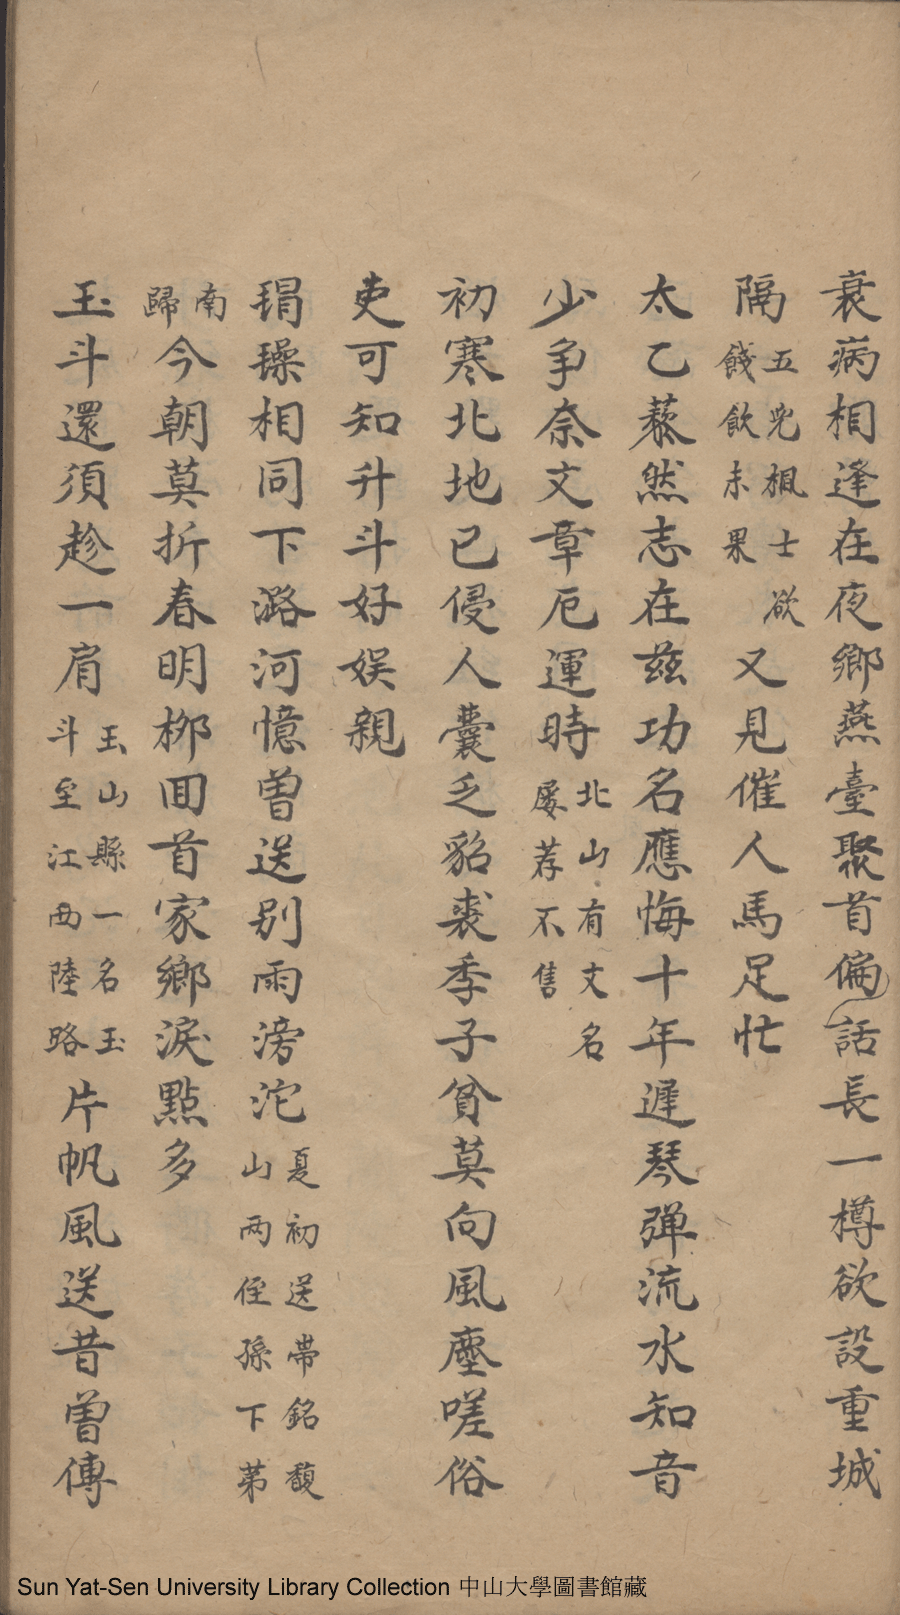 衰病相逢在夜鄉燕臺聚首偏話長一樽欲設重城
隔五兒楓士欲餞飲未果又見催人馬足忙
太乙藜然志在茲功名應悔十年遲琴弹流水知音
少争奈文章厄運時北山有文名屡荐不售
初寒北地已侵人囊乏貂裘季子貧莫向風塵嗟俗
吏可知升斗好娱親
琄璪相同下潞河憶曾送别雨滂沱夏初送帯銘馥山两侄孫下苐
南歸今朝莫折春明栁囬首家鄉淚點多
玉斗還須趁一肩玉山縣一名玉斗至江西陸路片帆風送昔曾傳
Sun Yat-Sen University Library Collection 中山大學圖書館藏